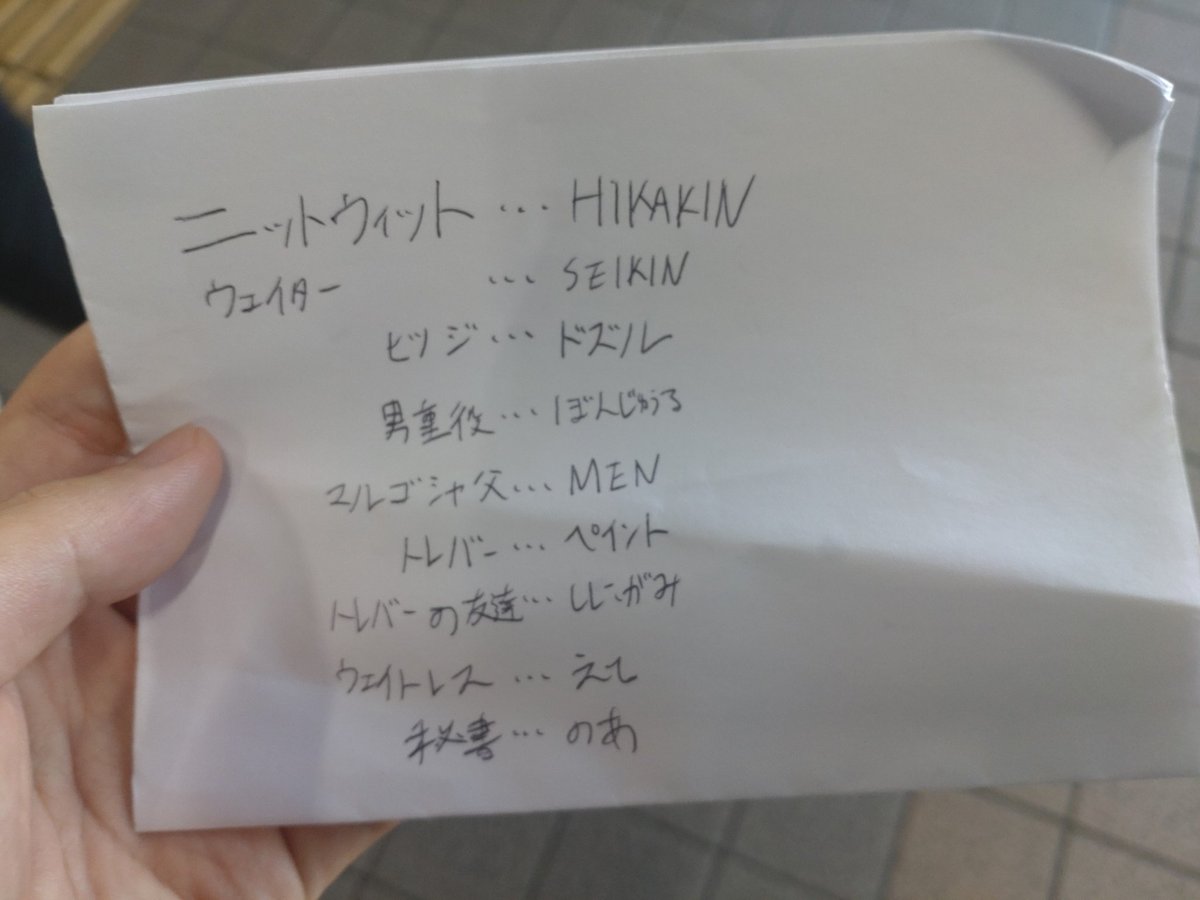 ニットウィット … HIKAKIN
ウェイター … SEIKIN
ヒツジ … ドズル
男重役 … ぼんじゅうる
マルゴシャ父 … MEN
トレバー … ペイント
トレバーの友達 … ししがみ
ウェイトレス … えて
秘書 … のあ